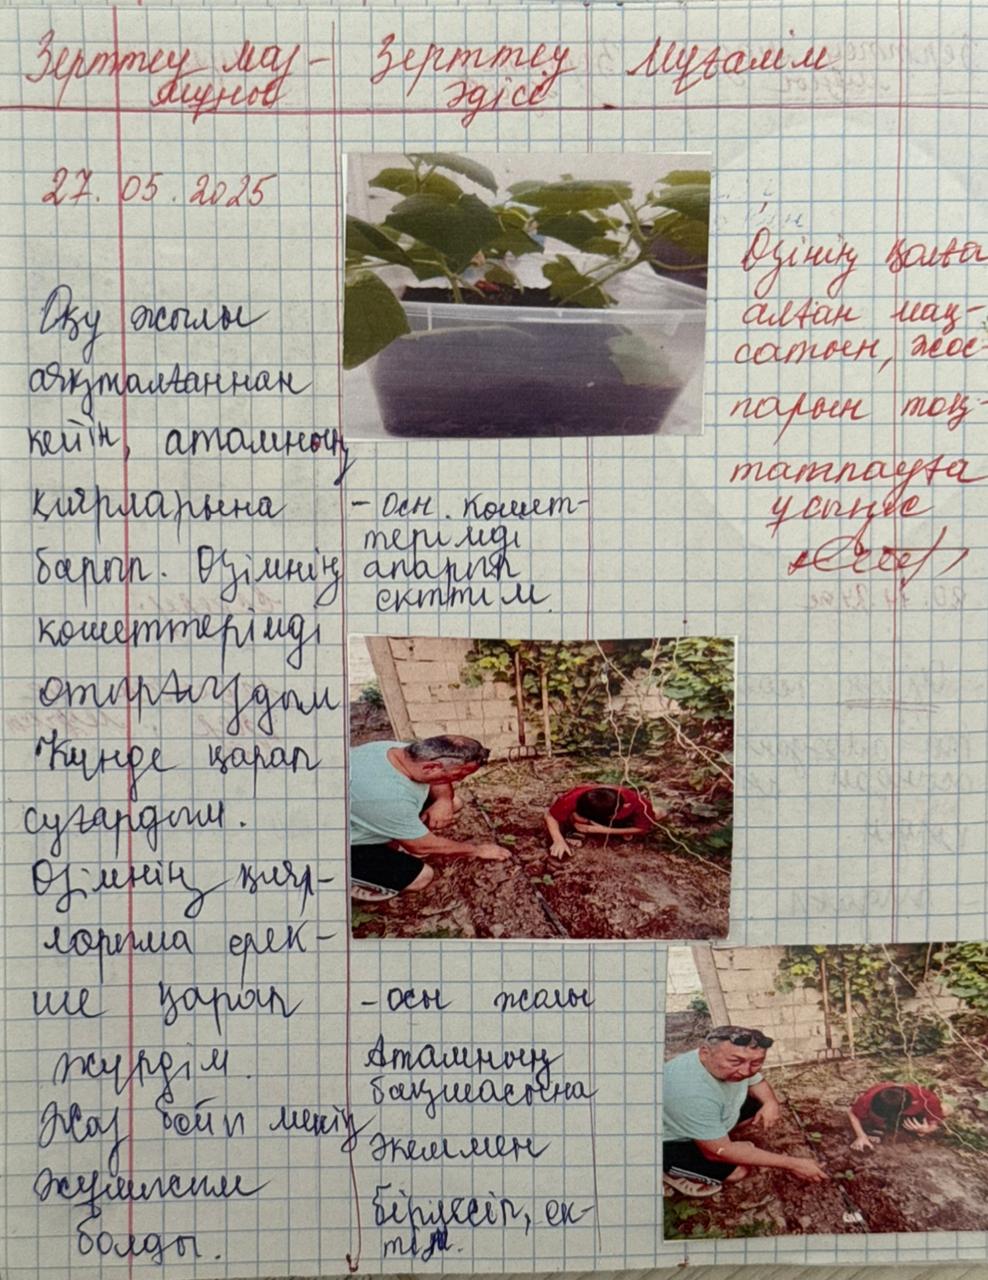 Зерттеу маз-
мұны
Зерттеу
әдісі
Мұғалім
27.05.2025
Оқу жылы
аяқталғаннан
кейін, атамның
қиярларына
барып. Өзімнің
көшеттерімді
отырғыздым
Күнде қарап
суғардым.
Өзімнің қияр-
ларыма ерек-
ше қарап
жүрдім.
Жаз бойы менің
жұмысым
болды.
- Осы көшет-
терімді
апарып
ектім.
- осы жазы
Атамның
бақшасына
Әкеммен
бірлесіп, ек-
тім.
Өзінің қолға
алған мақ-
сатын, жос-
парын тоқ-
татпауға
ұсыныс